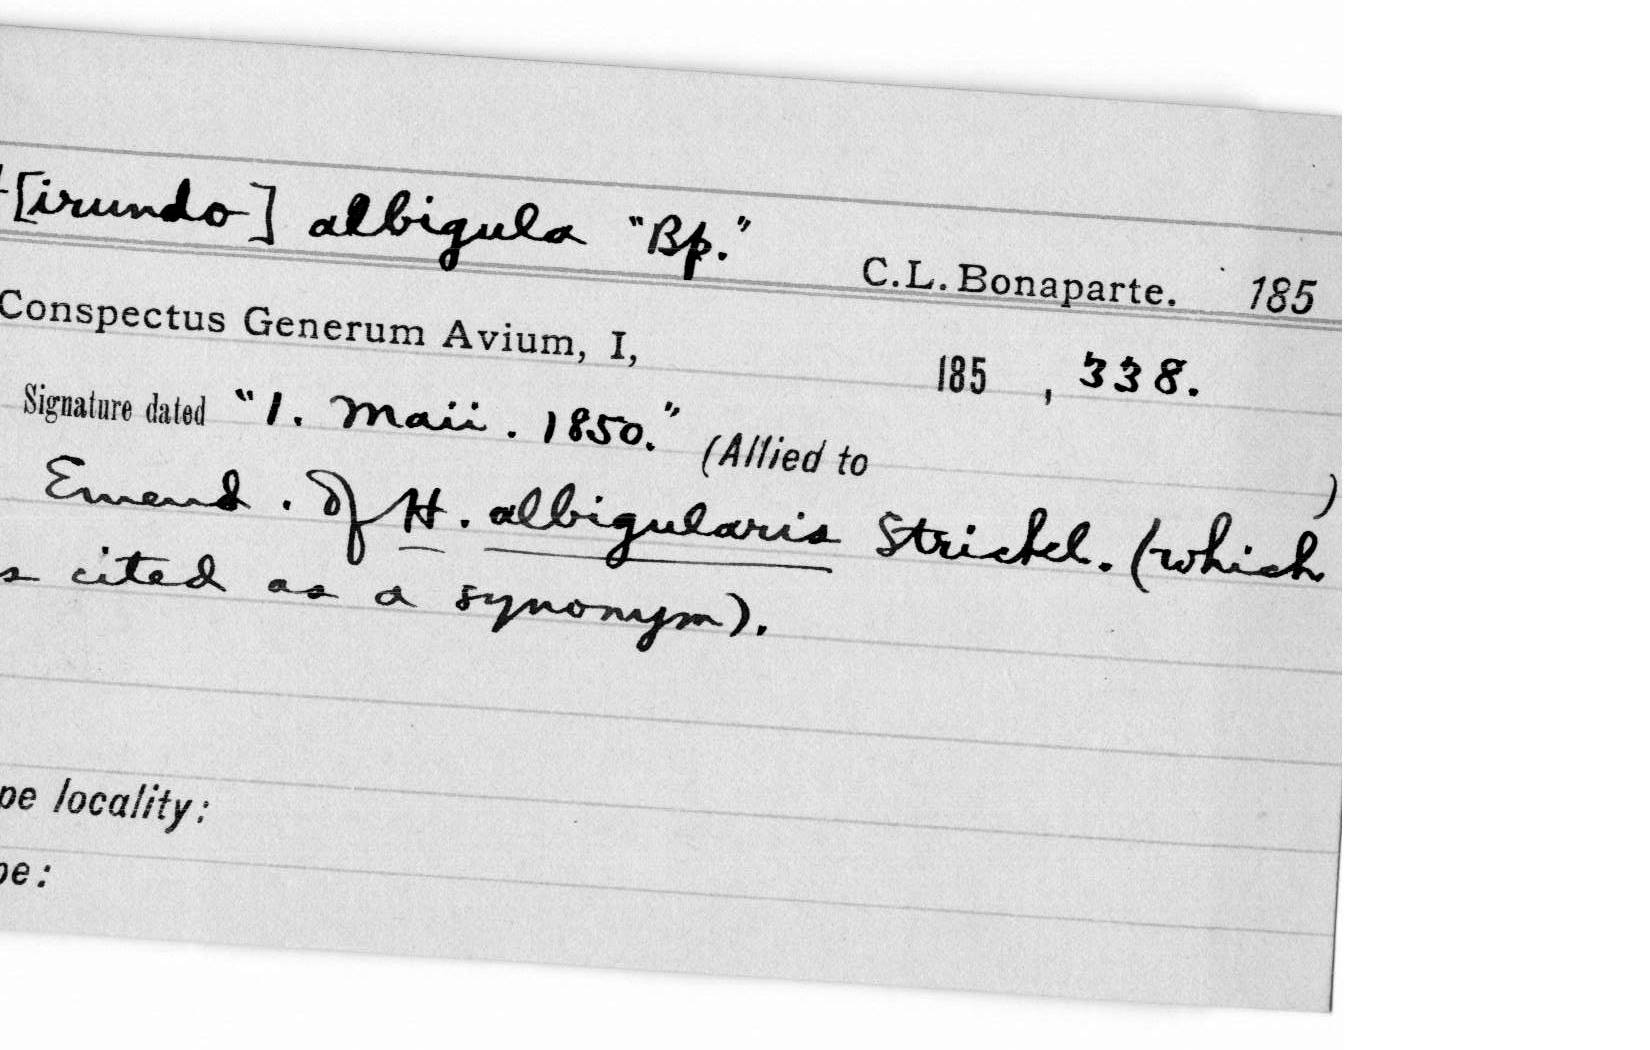 H[irundo] albigula "Bp." C.L. Bonaparte. 185
Conspectus Generum Avium, I, 185 , 338.
Signature dated "1. Maii. 1850." (Allied to )
Emend. of H. albigularis Strickl. (which
s cited as a synonym).
pe locality:
pe: